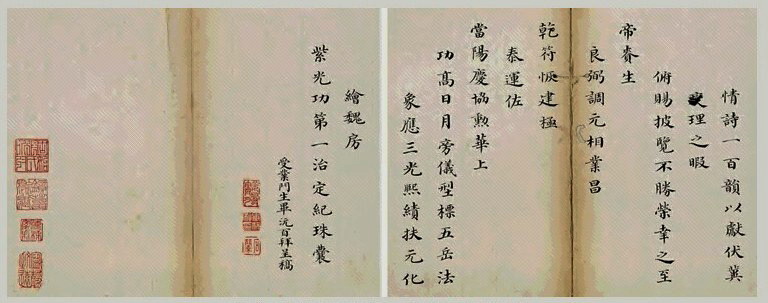 情詩一百韻以獻伏冀
爕理之暇
俯賜披覽不勝榮幸之至
帝賚生
良弼調元相業昌
乾符恢建極
泰運佐
當陽慶協勲華上
功高日月旁儀型標五岳法
象應三光熙績扶元化
繪魏房
紫光功第一治定紀珠囊
受業門生畢沅百拜呈稿